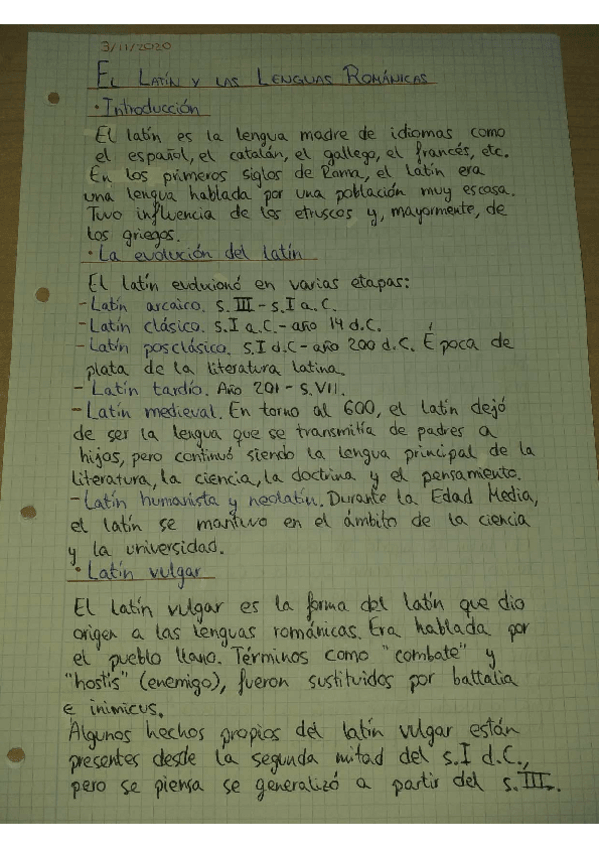 3/11/2020
EL LATÍN Y LAS LENGUAS ROMÁNICAS
· Introducción
El latín es la lengua madre de idiomas como
el español, el catalán, el gallego, el francés, etc.
En los primeros siglos de Roma, el latín era
una lengua hablada por una población muy escasa.
Tuvo influencia de los etruscos y, mayormente, de
los griegos.
· La evolución del latín
El latín evolucionó en varias etapas:
- Latín arcaico. S. III - s. I a. C.
- Latín clásico. S. I a.C. - año 14 d.C.
- Latín posclásico. S. I d.C - año 200 d.C. Época de
plata de la literatura latina.
- Latín tardío. Año 201 - S. VII.
- Latín medieval. En torno al 600, el latín dejó
de ser la lengua que se transmitía de padres a
hijos, pero continuó siendo la lengua principal de la
literatura, la ciencia, la doctrina y el pensamiento.
- Latín humanista y neolatín. Durante la Edad Media,
el latín se mantuvo en el ámbito de la ciencia
y la universidad.
· Latín vulgar
El latín vulgar es la forma del latín que dio
origen a las lenguas románicas. Era hablada por
el pueblo llano. Términos como "combate" y
"hostis" (enemigo), fueron sustituidos por battalia
e inimicus.
Algunos hechos propios del latín vulgar están
presentes desde la segunda mitad del s. I d.C.,
pero se piensa se generalizó a partir del s. III.